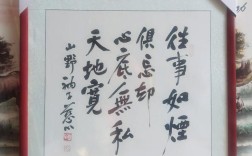 往事如煙
俱忘却
心底無私
天地寬
山野神工